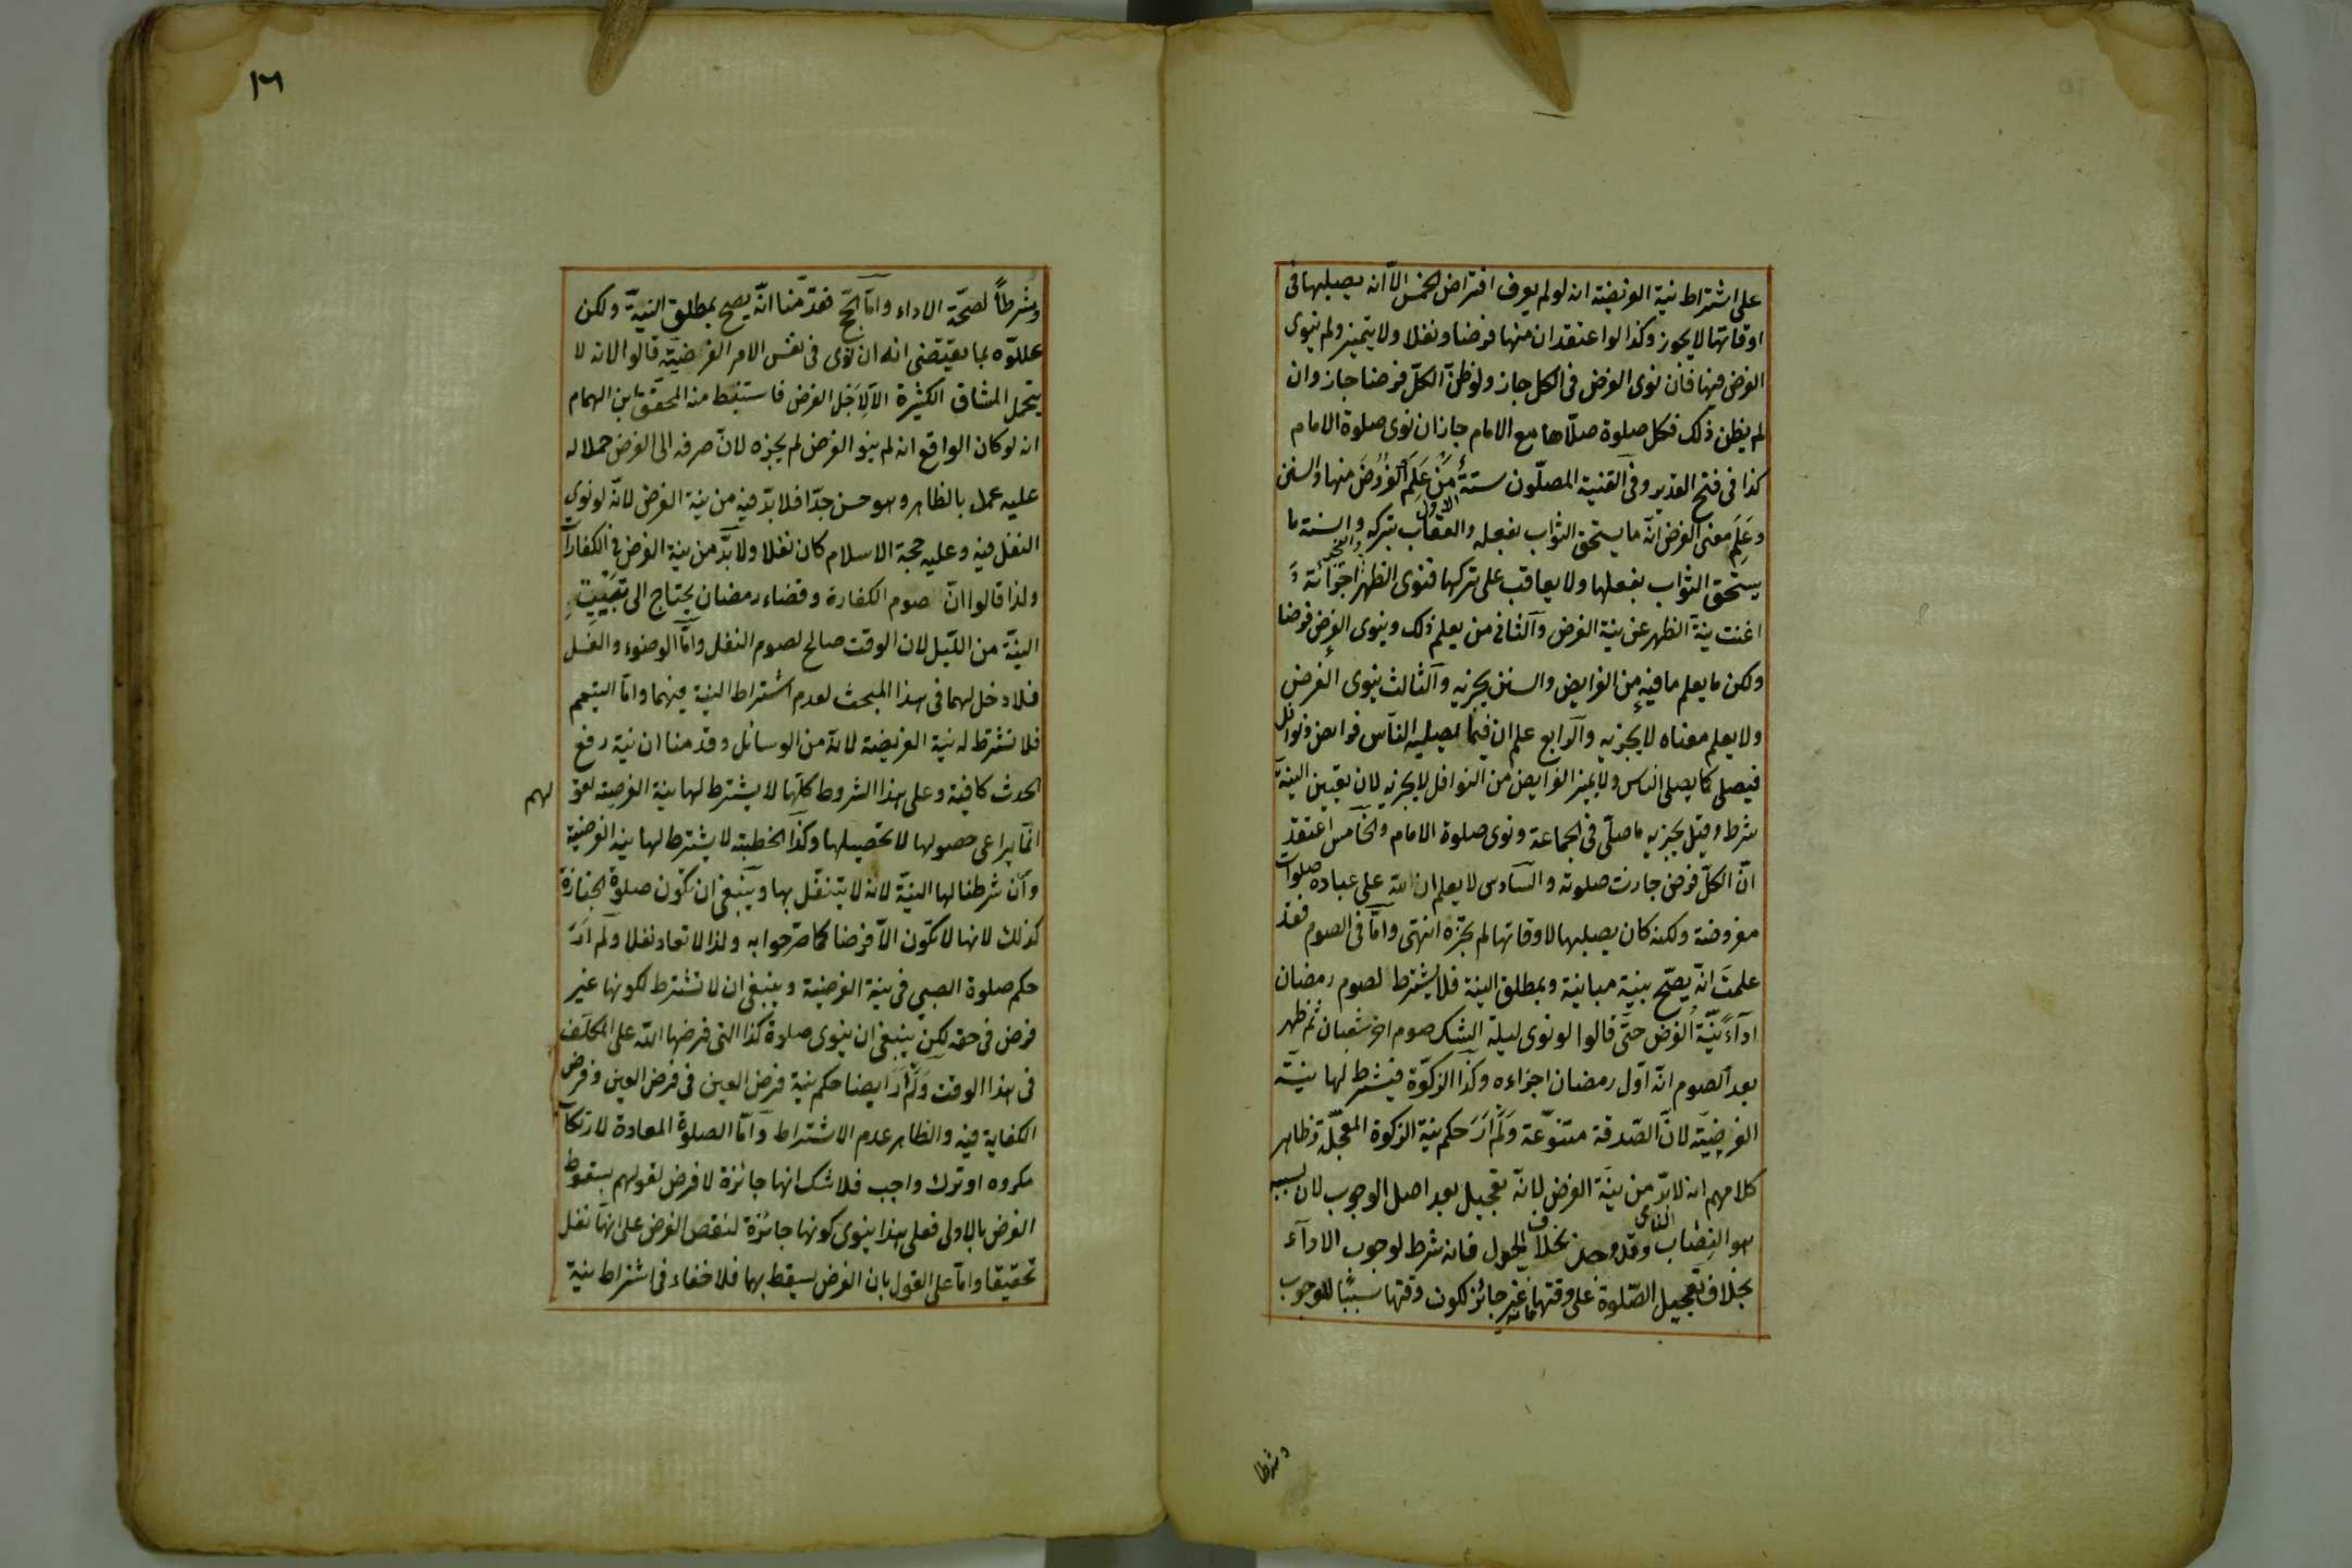 على اشتراط نية الفريضة انه لو لم يعرف افتراض الخمس الا انه يصليها فى
اوقاتها لا يجوز وكذا لو اعتقد ان منها فرضا ونفلا ولا يتميز ولم ينوى
الفرض فيها فان نوى الفرض فى الكل جاز ولو ظنّ الكلّ فرضا جاز وان
لم يظن ذلك فكل صلوة صلّاها مع الامام جاز ان نوى صلوة الامام
كذا فى فتح القدير وفى القنية المصلّون ستة الاول مَنْ عَلِمَ الفروضَ منها والسنن
وعَلِمَ معنى الفرض انّه ما يستحق الثواب بفعله والعقاب بتركه والسنة ما
يستحق الثواب بفعلها ولا يعاقب على تركها فنوى الظهر او الفجر اجزأته وَ
اغنت نيةُ الظهر عن نية الفرض والثانى من يعلم ذلك وينوى الفرض فرضا
ولكن ما يعلم ما فيه من الفرايض والسنن يجزيه والثالث ينوى الفرض
ولا يعلم معناه لا يجزيه والرابع علم ان فيما يصليه النّاس فرايض ونوافل
فيصلى كما يصلى الناس ولا يميز الفرايض من النوافل لا يجزيه لان تعيين النيّة
شرط وقيل يجزيه ما صلّى فى الجماعة ونوى صلوة الامام والخامس اعتقد
انّ الكلّ فرض جازت صلوته والسّادس لا يعلم ان للّه على عباده صلوات
مفروضة ولكنه كان يصليها لاوقاتها لم تجزه انتهى وامّا فى الصوم فقد
علمتَ انّه يصحّ بنية مباينة وبمطلق النية فلا يشترط لصوم رمضان
اداءً نيّة الفرض حتّى قالوا لو نوى ليلة الشك صوم اخر شعبان ثم ظهر
بعد الصوم انّه اوّل رمضان اجزاءه وكذا الزكوة فيشترط لها نيّة
الفرضيّة لانّ الصّدقة متنوّعة ولم أرَ حكم نية الزكوة المعجّلة وظاهر
كلامهم انه لابدّ من نيّة الفرض لانّه تعجيل بعد اصل الوجوب لان سببه
هو النِصَاب النامى وقد وجد بخلاف الحول فانه شرط لوجوب الاداء
بخلاف تعجيل الصّلوة على وقتها فانه غير جائز لكون وقتها سببًا للوجوب
وشرطا
١٦
وشرطاً لصحّة الاداء وامّا الحج فقدّمنا انّه يصح بمطلق النيّة ولكن
علّلوه بما يقتضى انه ان نوى فى نفس الامر الفرضيّة قالوا لانه لا
يتحمل المشاق الكثيرة الّا لِأَجل الفرض فاستنبط منه المحقّق ابن الهمام
انه لو كان الواقع انه لم ينو الفرض لم يجزه لانّ صرفه الى الفرض حملا له
عليه عمل بالظاهر وهو حسن جدّا فلا بدّ فيه من نية الفرض لانّه لو نوى
النفل فيه وعليه حجة الاسلام كان نفلا ولا بدّ من نية الفرض فى الكفارات
ولذا قالوا انّ صوم الكفارة وقضاء رمضان يحتاج الى تَبْيِيتِ
النيّة من اللّيل لان الوقت صالح لصوم النفل وامّا الوضوء والغسل
فلا دخل لهما فى هذا المبحث لعدم اشتراط النية فيهما وامّا التيمم
فلا تشترط له نية الفريضة لانّه من الوسائل وقدمنا ان نية رفع
الحدث كافية وعلى هذا الشروط كلّها لا يشترط لها نية الفرضية لقو لهم
انّما يراعى حصولها لا تحصيلها وكذا الخطبة لا يشترط لها نية الفرضية
وان شرطنا لها النيّة لانه لا يتنفّل بها وينبغى ان تكون صلوة الجنازة
كذلك لانها لا تكون الّا فرضا كما صرّحوا به ولذا لا تعاد نفلا ولم أرَ
حكم صلوة الصبي فى نية الفرضية وينبغى ان لا تشترط لكونها غير
فرض فى حقه لكن ينبغى ان ينوى صلوة كذا التى فرضها اللّه على المكلّف
فى هذا الوقت وَلم أرَ ايضا حكم نية فرض العين فى فرض العين وفرض
الكفاية فيه والظاهر عدم الاشتراط وامّا الصلوة المعادة لارتكاب
مكروه او ترك واجب فلا شك انها جائزة لا فرض لقولهم بسقوط
الفرض بالاولى فعلى هذا ينوى كونها جائزة لنقص الفرض على انها نفل
تحقيقا وامّا على القول بان الفرض يسقط بهما فلا خفاء فى اشتراط نية